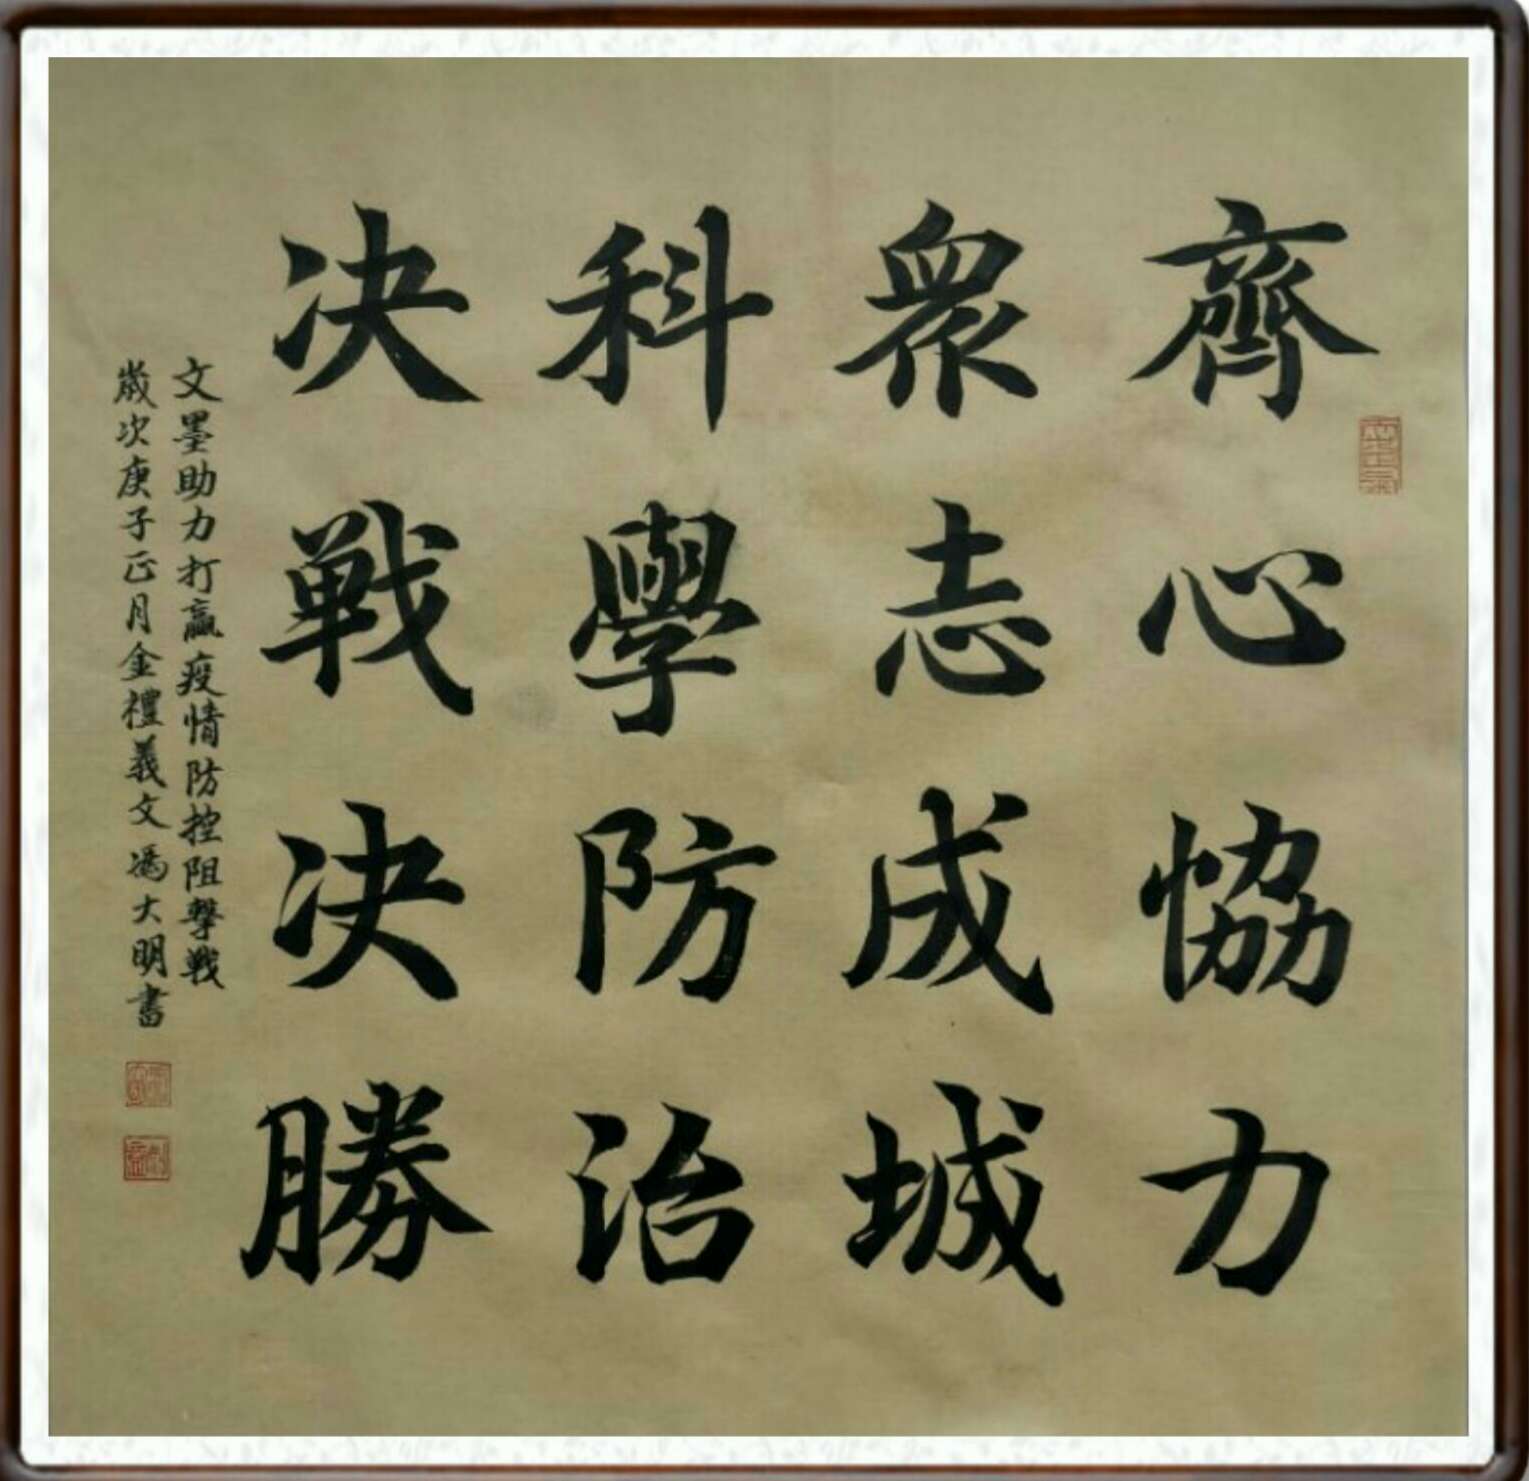 齊心協力
衆志成城
科學防治
决戦决勝
文墨助力打贏疫情防控阻擊戦
歲次庚子正月金禮義文馮大明書